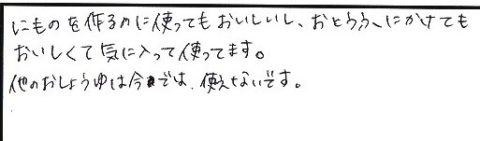 にものを作るのに使ってもおいしいし、おとうふにかけても
おいしくて気に入って使ってます。
他のおしょうゆは今では、使えないです。